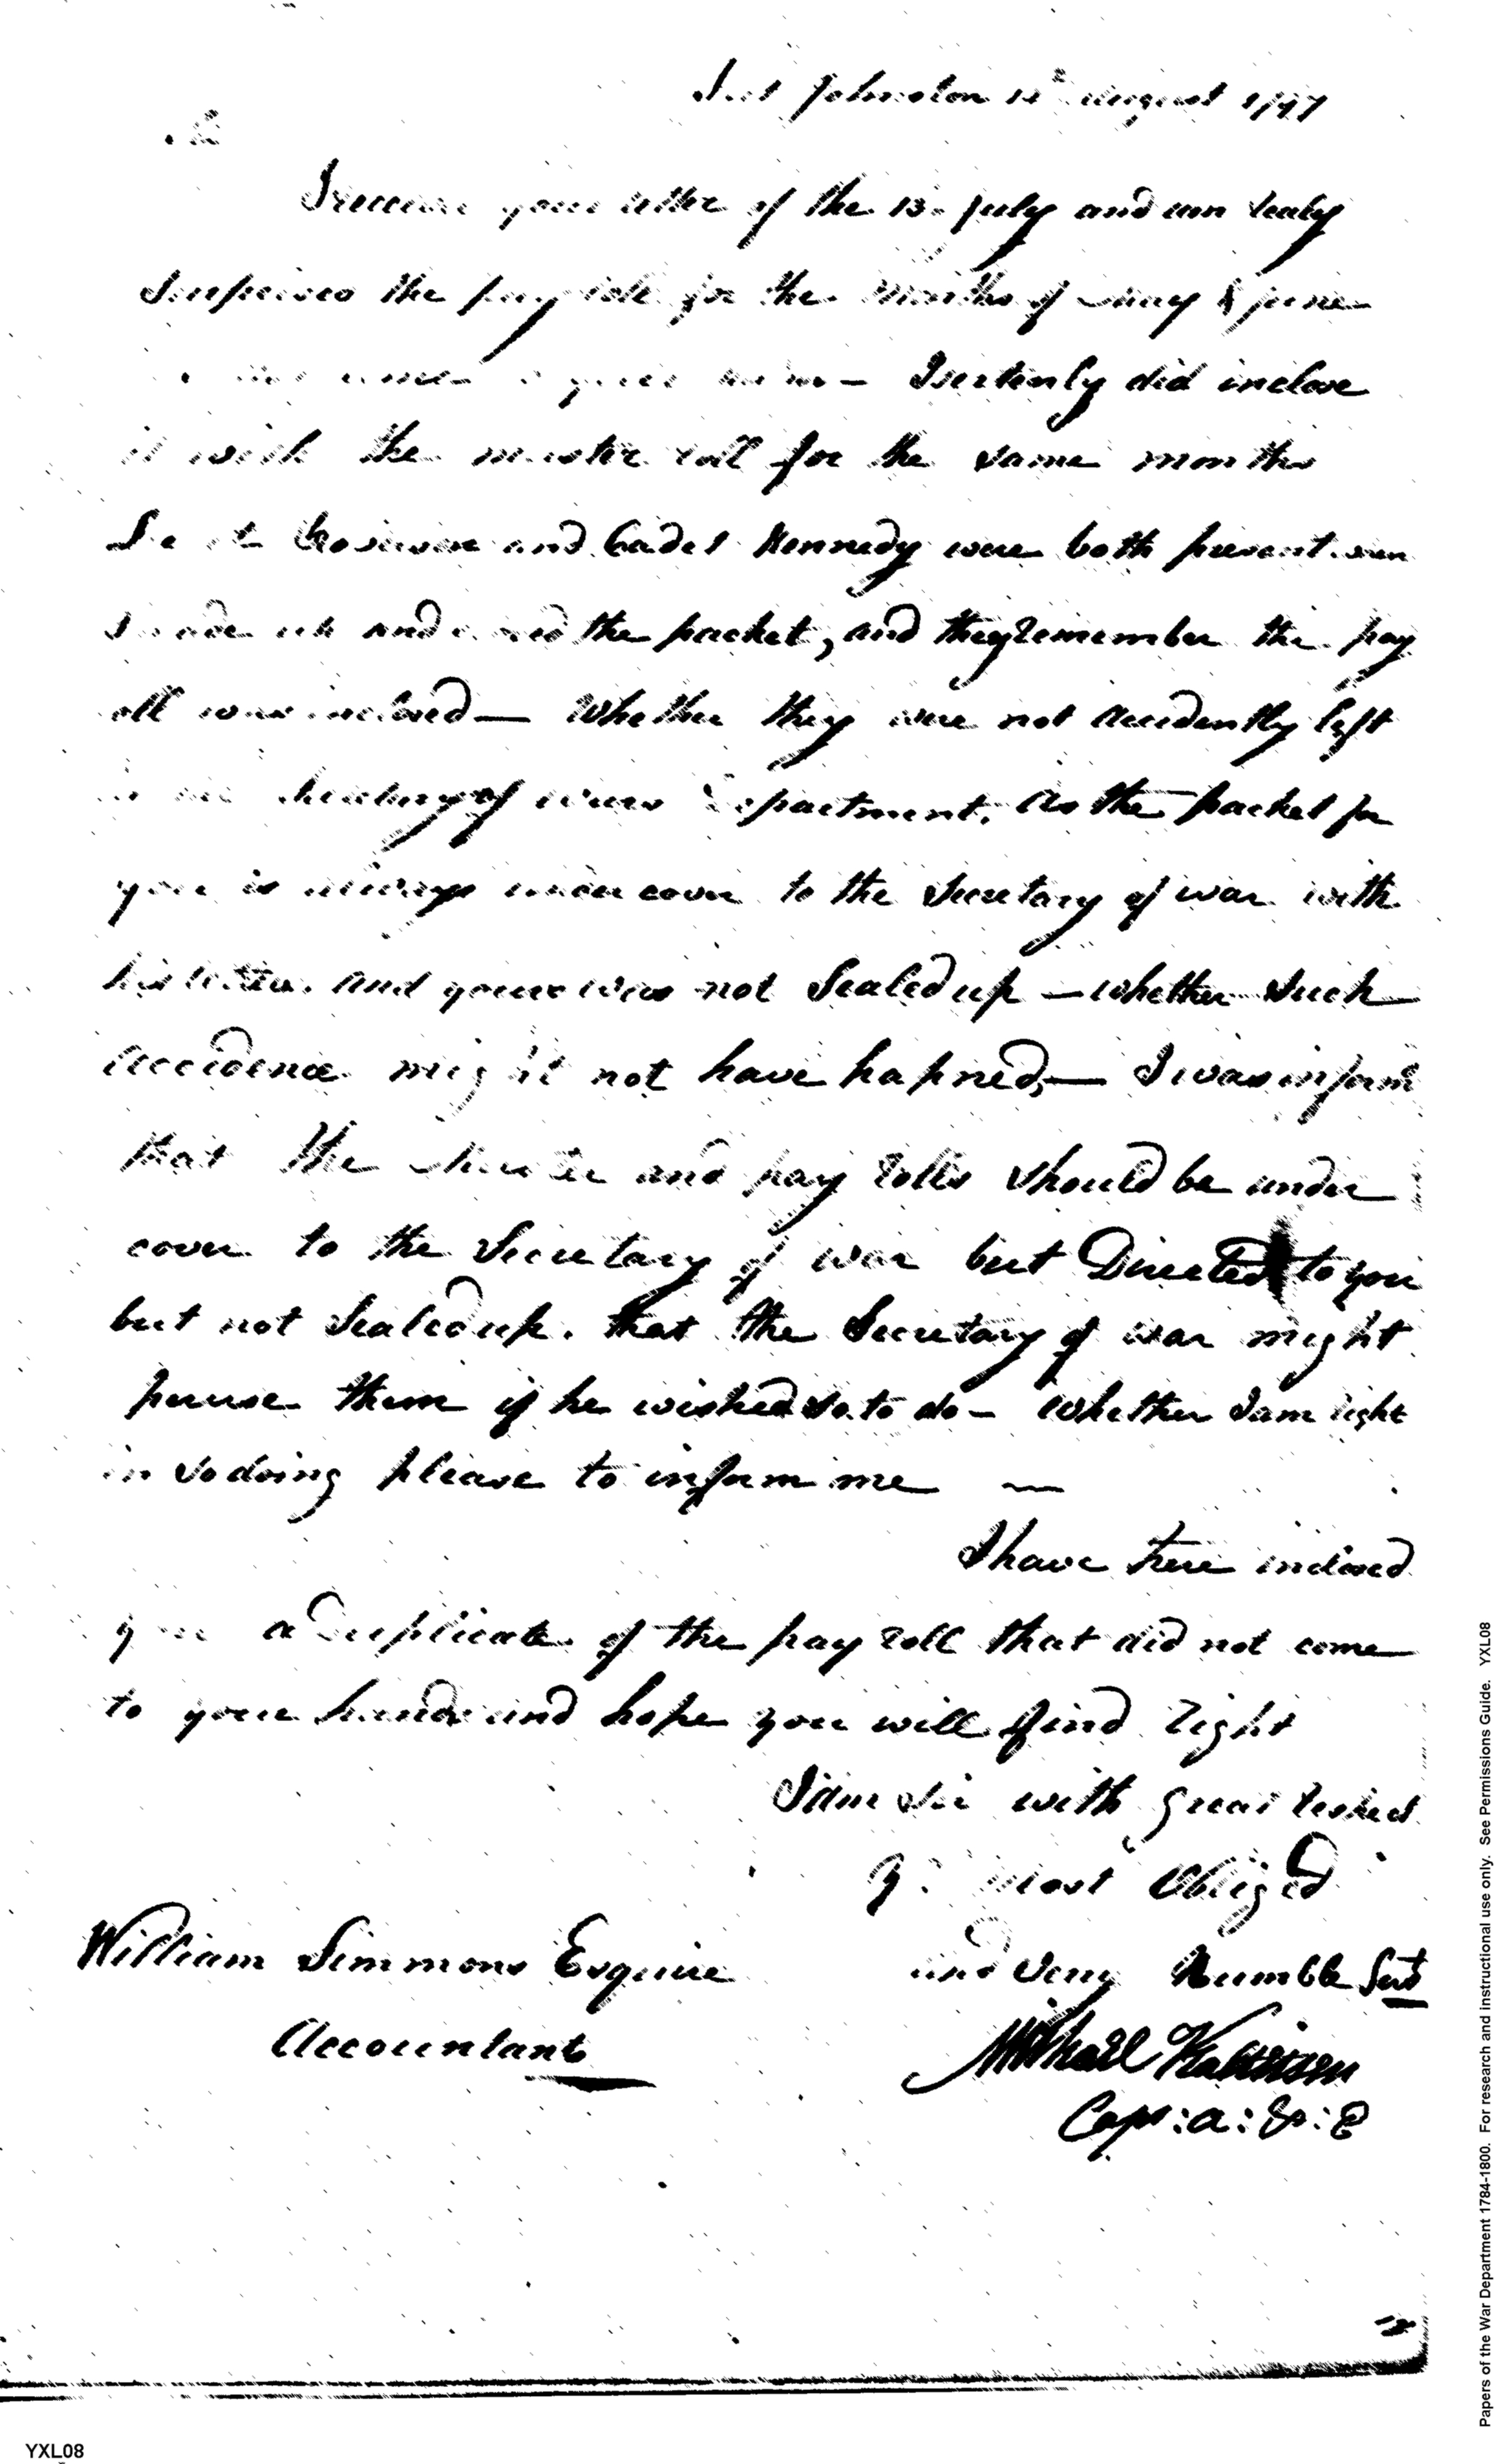 Fort Johnston 12 August 1797
Sir
I received your letter of the 13. July and am realy
Surprised the pay roll for the Months of May & June
did not come to your hands – I certenly did inclose
it with the muster roll for the same months
and Cadet Kennedy were both present when
I made up and the packet, and they remember the pay
roll was inclosed — Whether they were not accidently left
in the Secretary of wars Department, as the packet for
you is always under cover to the Secretary of war with
his letter. and yours was not Sealed up — whether Such
accidence might not have hapned, — I was inform'd
that the Muster and pay rolls should be under
cover to the Secretary of war but Directed to you
but not Sealed up. that the Secretary of war might
peruse them if he wished so to do – Whether I am right
in so doing please to inform me —
I have here inclosed
you a Duplicate of the pay roll that did not come
to your hands and hope you will find right
I am Sir with great respect
Yr. Most Obliged
and Very Humble Sert
William Simmons Esquire
Accountant
Michael Kalteisen
Cap: a: & : E
Papers of the War Department 1784-1800. For research and instructional use only. See Permissions Guide. YXL08
YXL08